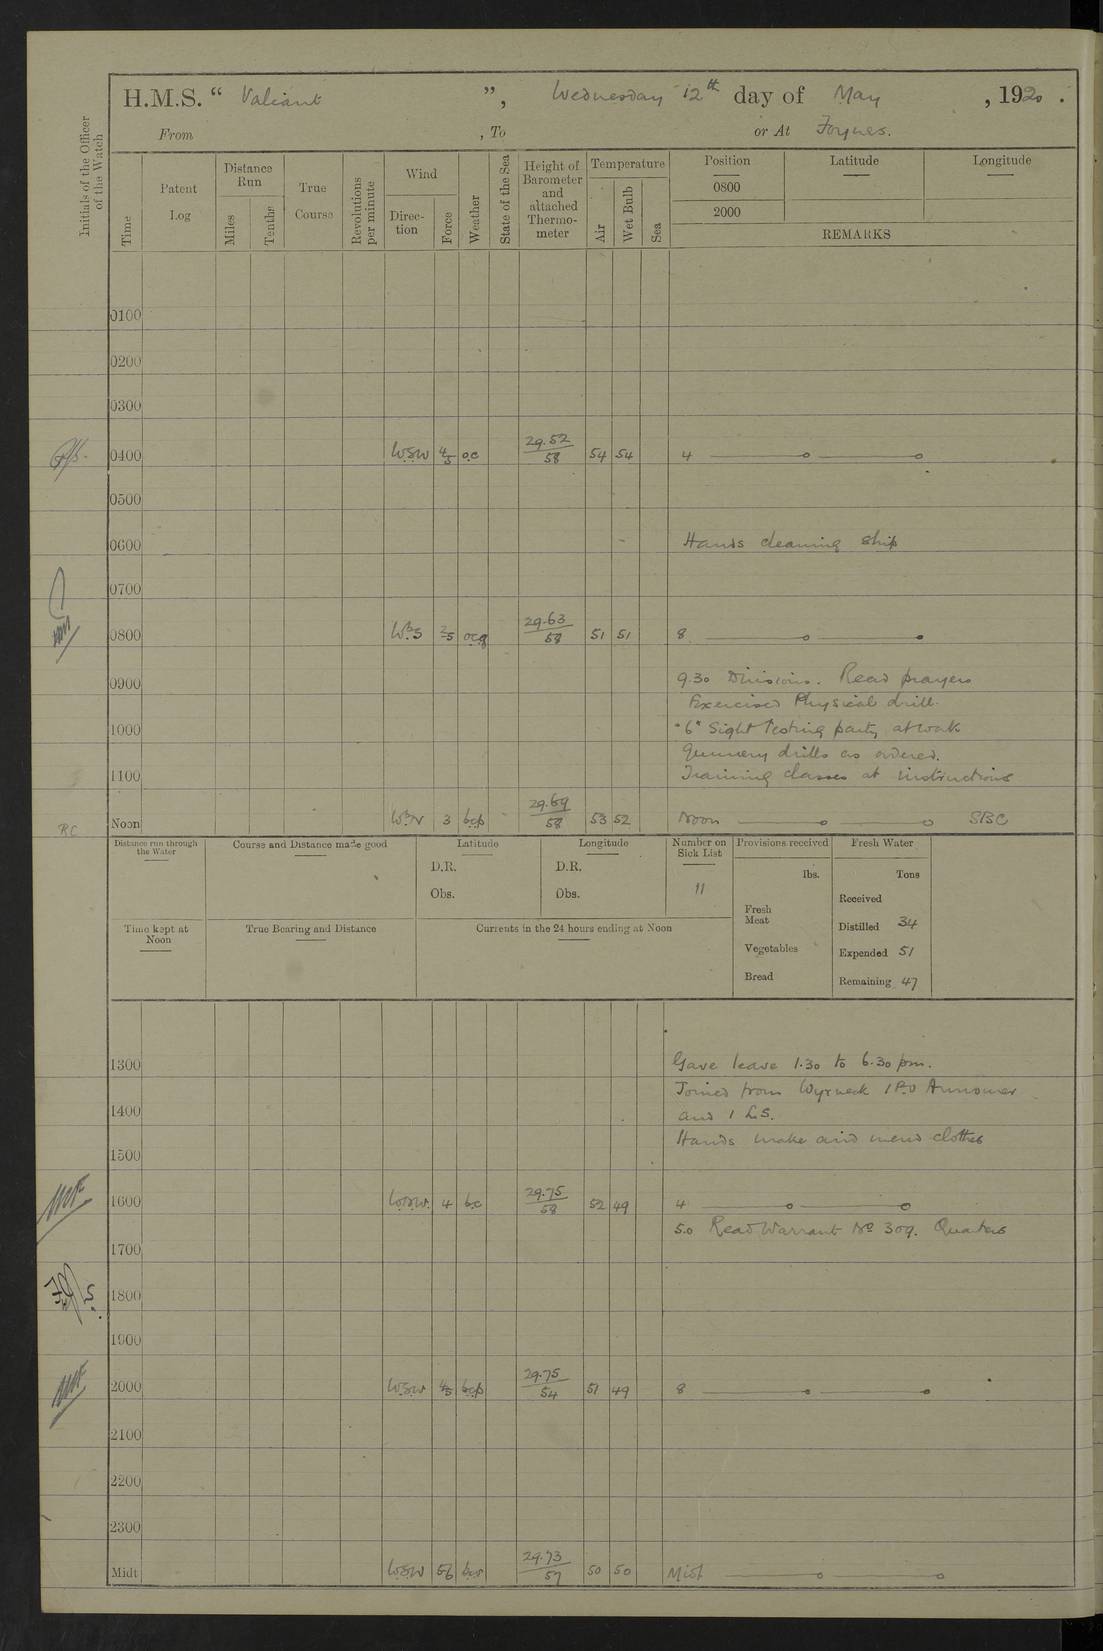 H.M.S. “ Valiant ”, Wednesday 12th day of May , 1920 .
From , To or At Foynes.
Initials of the Officer of the Watch
Time
Patent Log
Distance Run
Miles
Tenths
True Course
Revolutions per minute
Wind
Direction
Force
Weather
State of the Sea
Height of Barometer and attached Thermometer
Temperature
Air
Wet Bulb
Sea
Position
Latitude
Longitude
0800
2000
REMARKS
0100
0200
0300
0400 WSW 4/5 oc 29.52/58 54 54 4
0500
0600 Hands cleaning ship
0700
0800 WbS 2-5 ocq 29.63/58 51 51 8
0900 9.30 Divisions. Read prayers
Exercised Physical drill.
1000 "6" Sight Testing party at work
Gunnery drills as ordered.
1100 Training classes at instructions
RC Noon WbN 3 bcp 29.69/58 53 52 Noon SBC
Distance run through the Water
Course and Distance made good
Latitude
D.R.
Obs.
Longitude
D.R.
Obs.
Number on Sick List
11
Provisions received
lbs.
Fresh Meat
Vegetables
Bread
Fresh Water
Tons
Received
Distilled 34
Expended 51
Remaining 47
Time kept at Noon
True Bearing and Distance
Currents in the 24 hours ending at Noon
1300 Gave leave 1.30 to 6.30 pm.
Joined from Wyrneck 1 P.O
1400 and 1 L.S.
Hands make and mend clothes
1500
1600 4 bc 29.75/58 52 49 4
5.0 Read Warrant No 309. Quarters
1700
1800
1900
2000 WSW 4/5 bcp 29.75/54 51 49 8
2100
2200
2300
Midt WSW 5-6 29.73/57 50 50 Midt